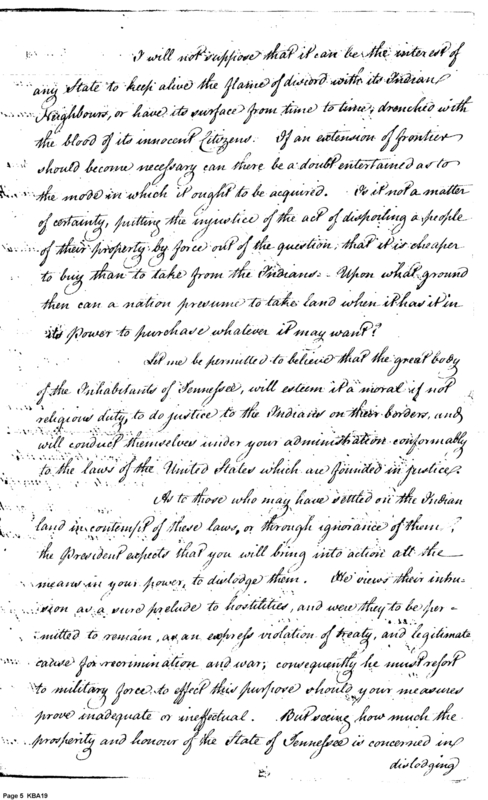 I will not suppose that it can be the interest of
any State to keep alive the flame of discord with its Indian
Neighbours, or have its surface from time to time, drenched with
the blood of its innocent Citizens. If an extension of frontier
should become necessary can there be a doubt entertained as to
the mode in which it ought to be acquired. Is it not a matter
of certainty, putting the injustice of the act of dispoiling a people
of their property by force out of the question, that it is cheaper
to buy than to take from the Indians. Upon what ground
then can a nation presume to take land when it has it in
its power to purchase whatever it may want?
Let me be permitted to believe that the great body
of the Inhabitants of Tennessee, will esteem it a moral if not
religious duty, to do justice to the Indians on their borders, and
will conduct themselves under your administration conformably
to the laws of the United States which are founded in justice.
As to those who may have settled on the Indian
land in contempt of these laws, or through ignorance of them,
the President expects that you will bring into action all the
means in your power, to dislodge them. He views their intru-
sion as a sure prelude to hostilities, and were they to be per-
mitted to remain, as an express violation of treaty, and legitimate
cause for recrimination and war; consequently he must resort
to military force to effect this purpose should your measures
prove inadequate or ineffectual. But seeing how much the
prosperity and honour of the State of Tennessee is concerned in
dislodging
Page 5 KBA19